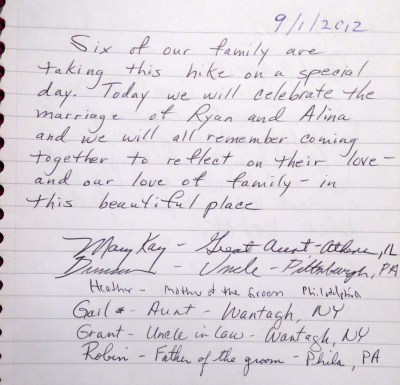 9/1/2012
Six of our family are
taking this hike on a special
day. Today we will celebrate the
marriage of Ryan and Alina
and we will all remember coming
together to reflect on their love -
and our love of family - in
this beautiful place
Mary Kay - Great Aunt - IL
- Uncle - Pittsburgh, PA
Heather - Mother of the Groom Philadelphia
Gail - Aunt - Wantagh, NY
Grant - Uncle in Law - Wantagh, NY
Robin - Father of the groom - Phila, PA